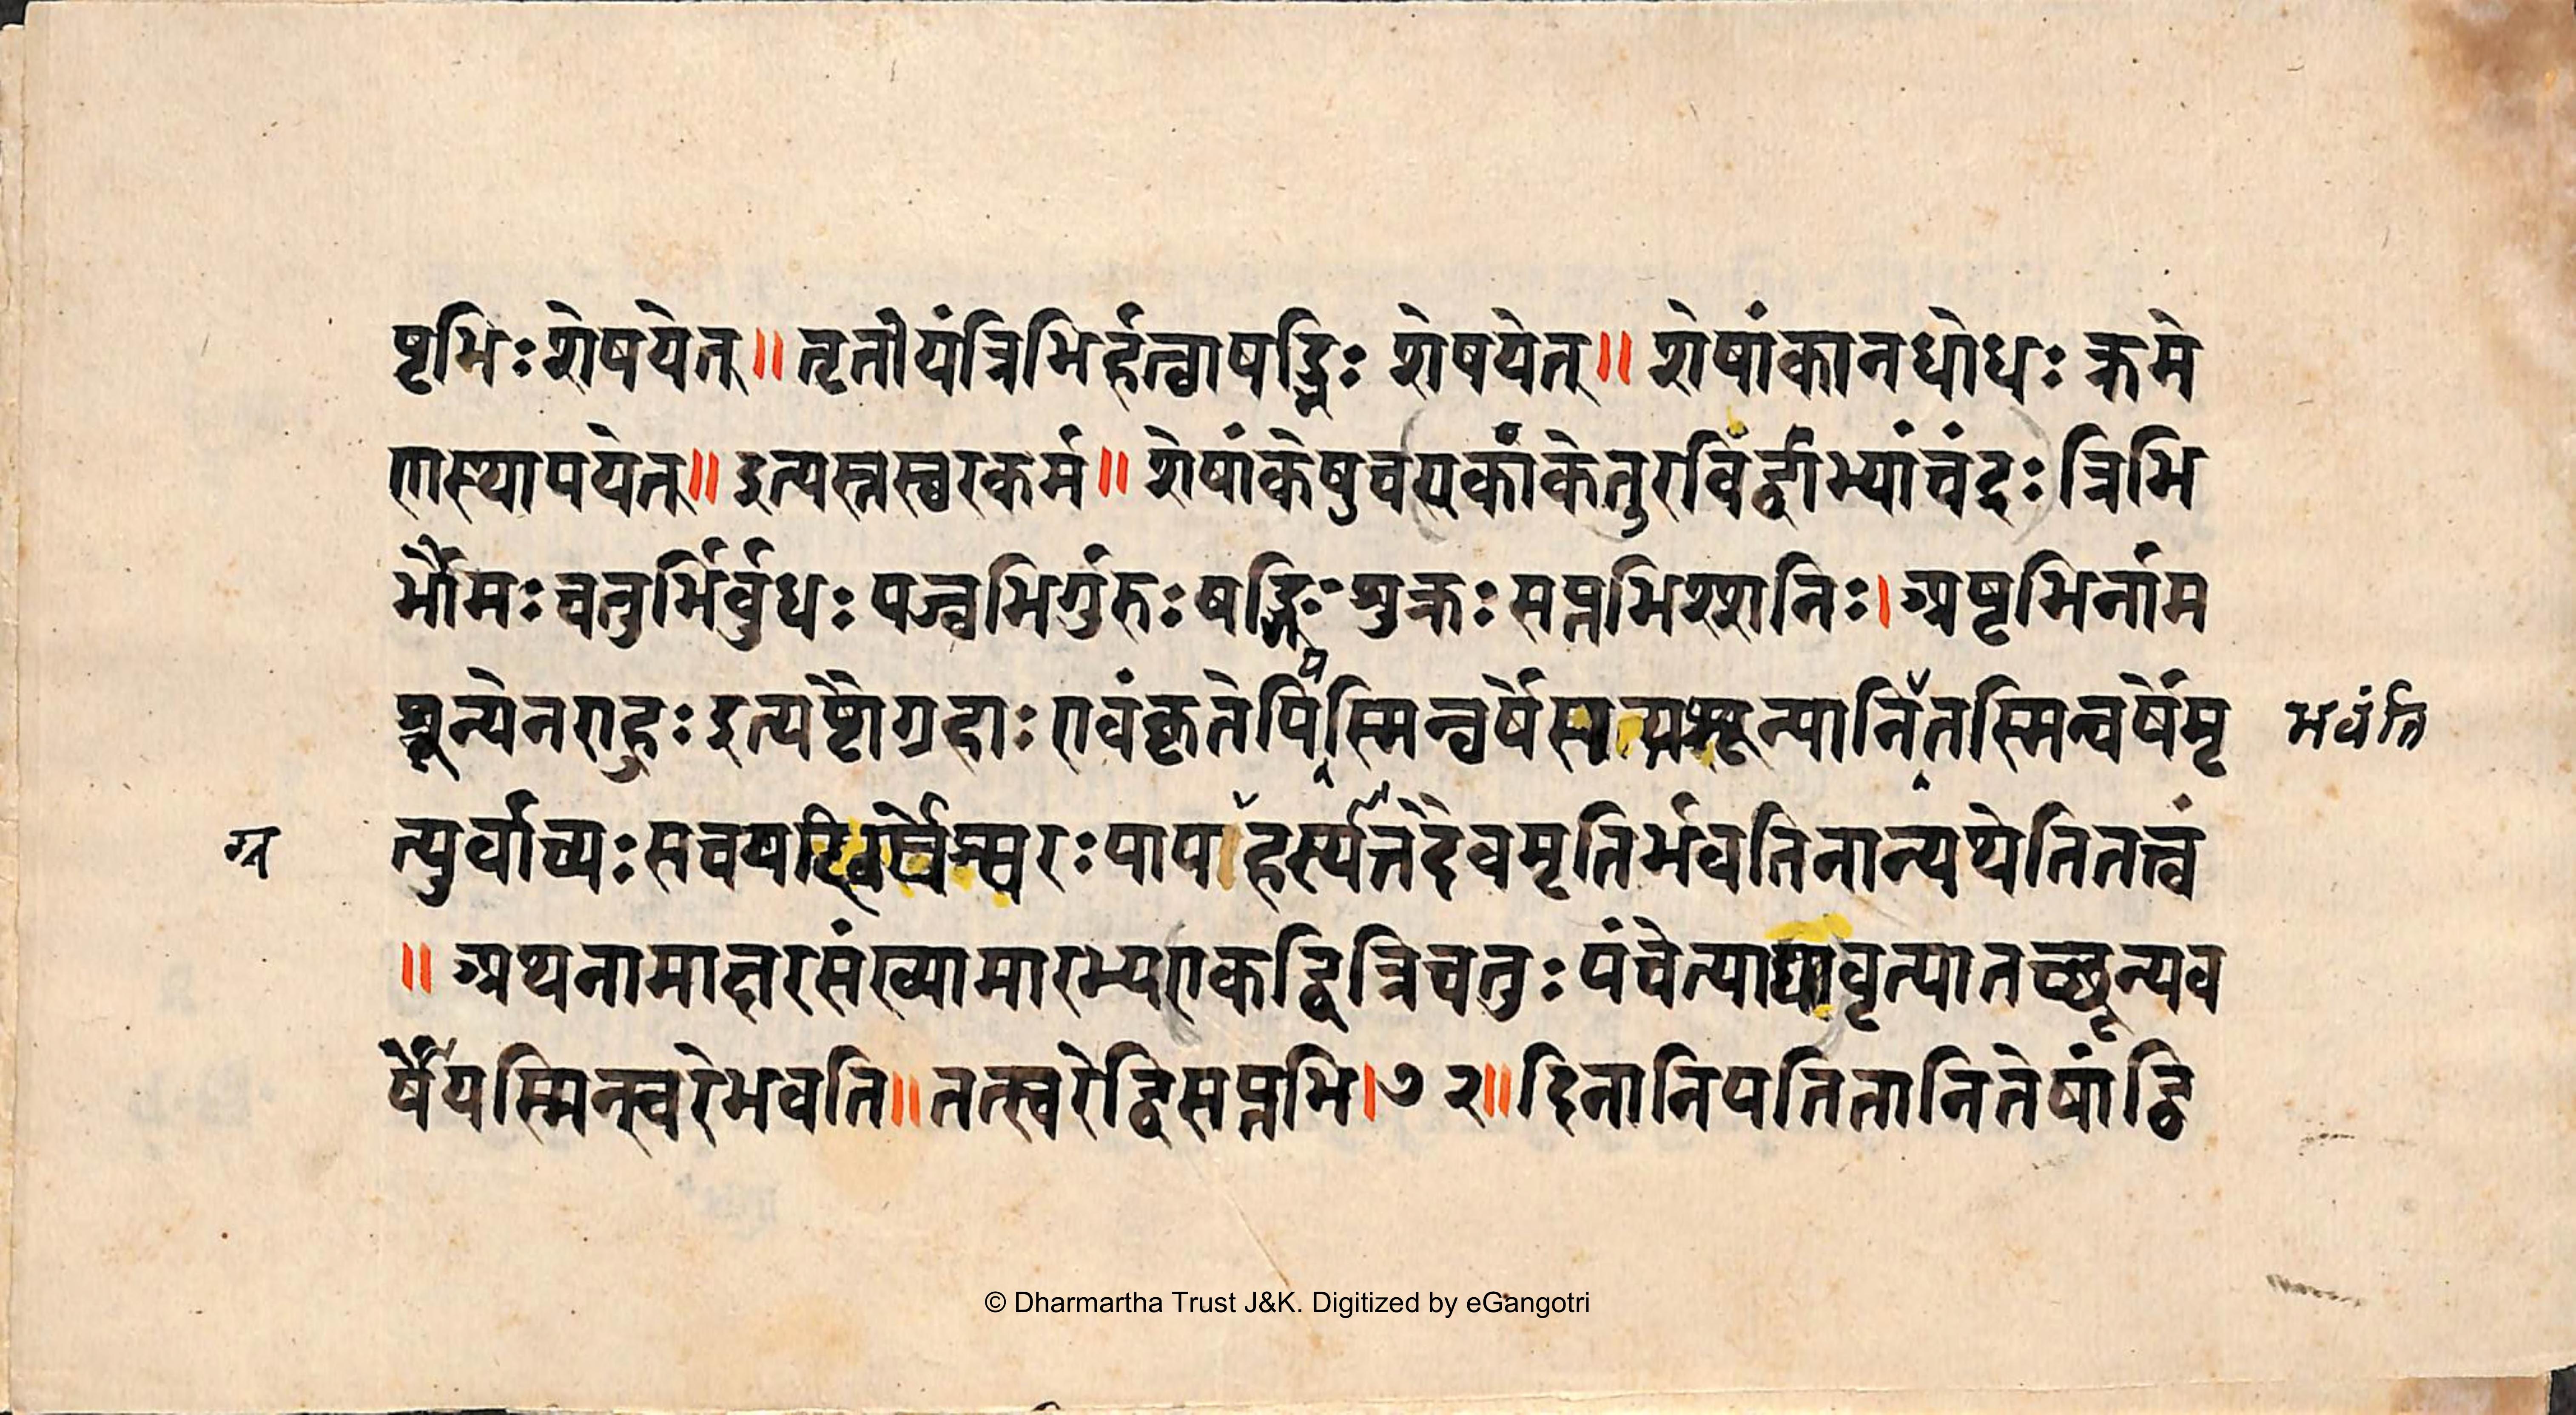 ष्टभिः शेषयेत् ॥ तृतीयंत्रिभिर्हत्वाषद्भिः शेषयेत् ॥ शेषांकानधोधः क्रमे
णस्थापयेत् ॥ इत्यस्नस्वरकर्म ॥ शेषांकेषुच एकांकेतुरविं द्वाभ्यांचंद्रः त्रिभि
र्भौमः चतुर्भिर्बुधः पञ्चभिर्गुरुः षड्भिः शुक्रः सप्तभिश्शनिः । अष्टभिर्नाम
शून्येनराहुः इत्यष्टौग्रहाः एवंकृतेपि स्मिन्वर्षे न्यानि तस्मिन्वर्षेमृ
भवंति
त्युर्वाच्यः सच रः पापा हर्स्य त्तदैवमृतिर्भवतिनान्यथेतितत्त्वं
ग्र
॥ अथनामाक्षरसंख्यामारभ्यएकद्वित्रिचतुः पंचेत्याद्यावृत्यातच्छून्यव
र्षेयस्मिन्स्वरेभवति ॥ तत्स्वरेद्विसप्तभि । ७२ ॥ दिनानिपतितानितेषांद्वि
© Dharmartha Trust J&K. Digitized by eGangotri